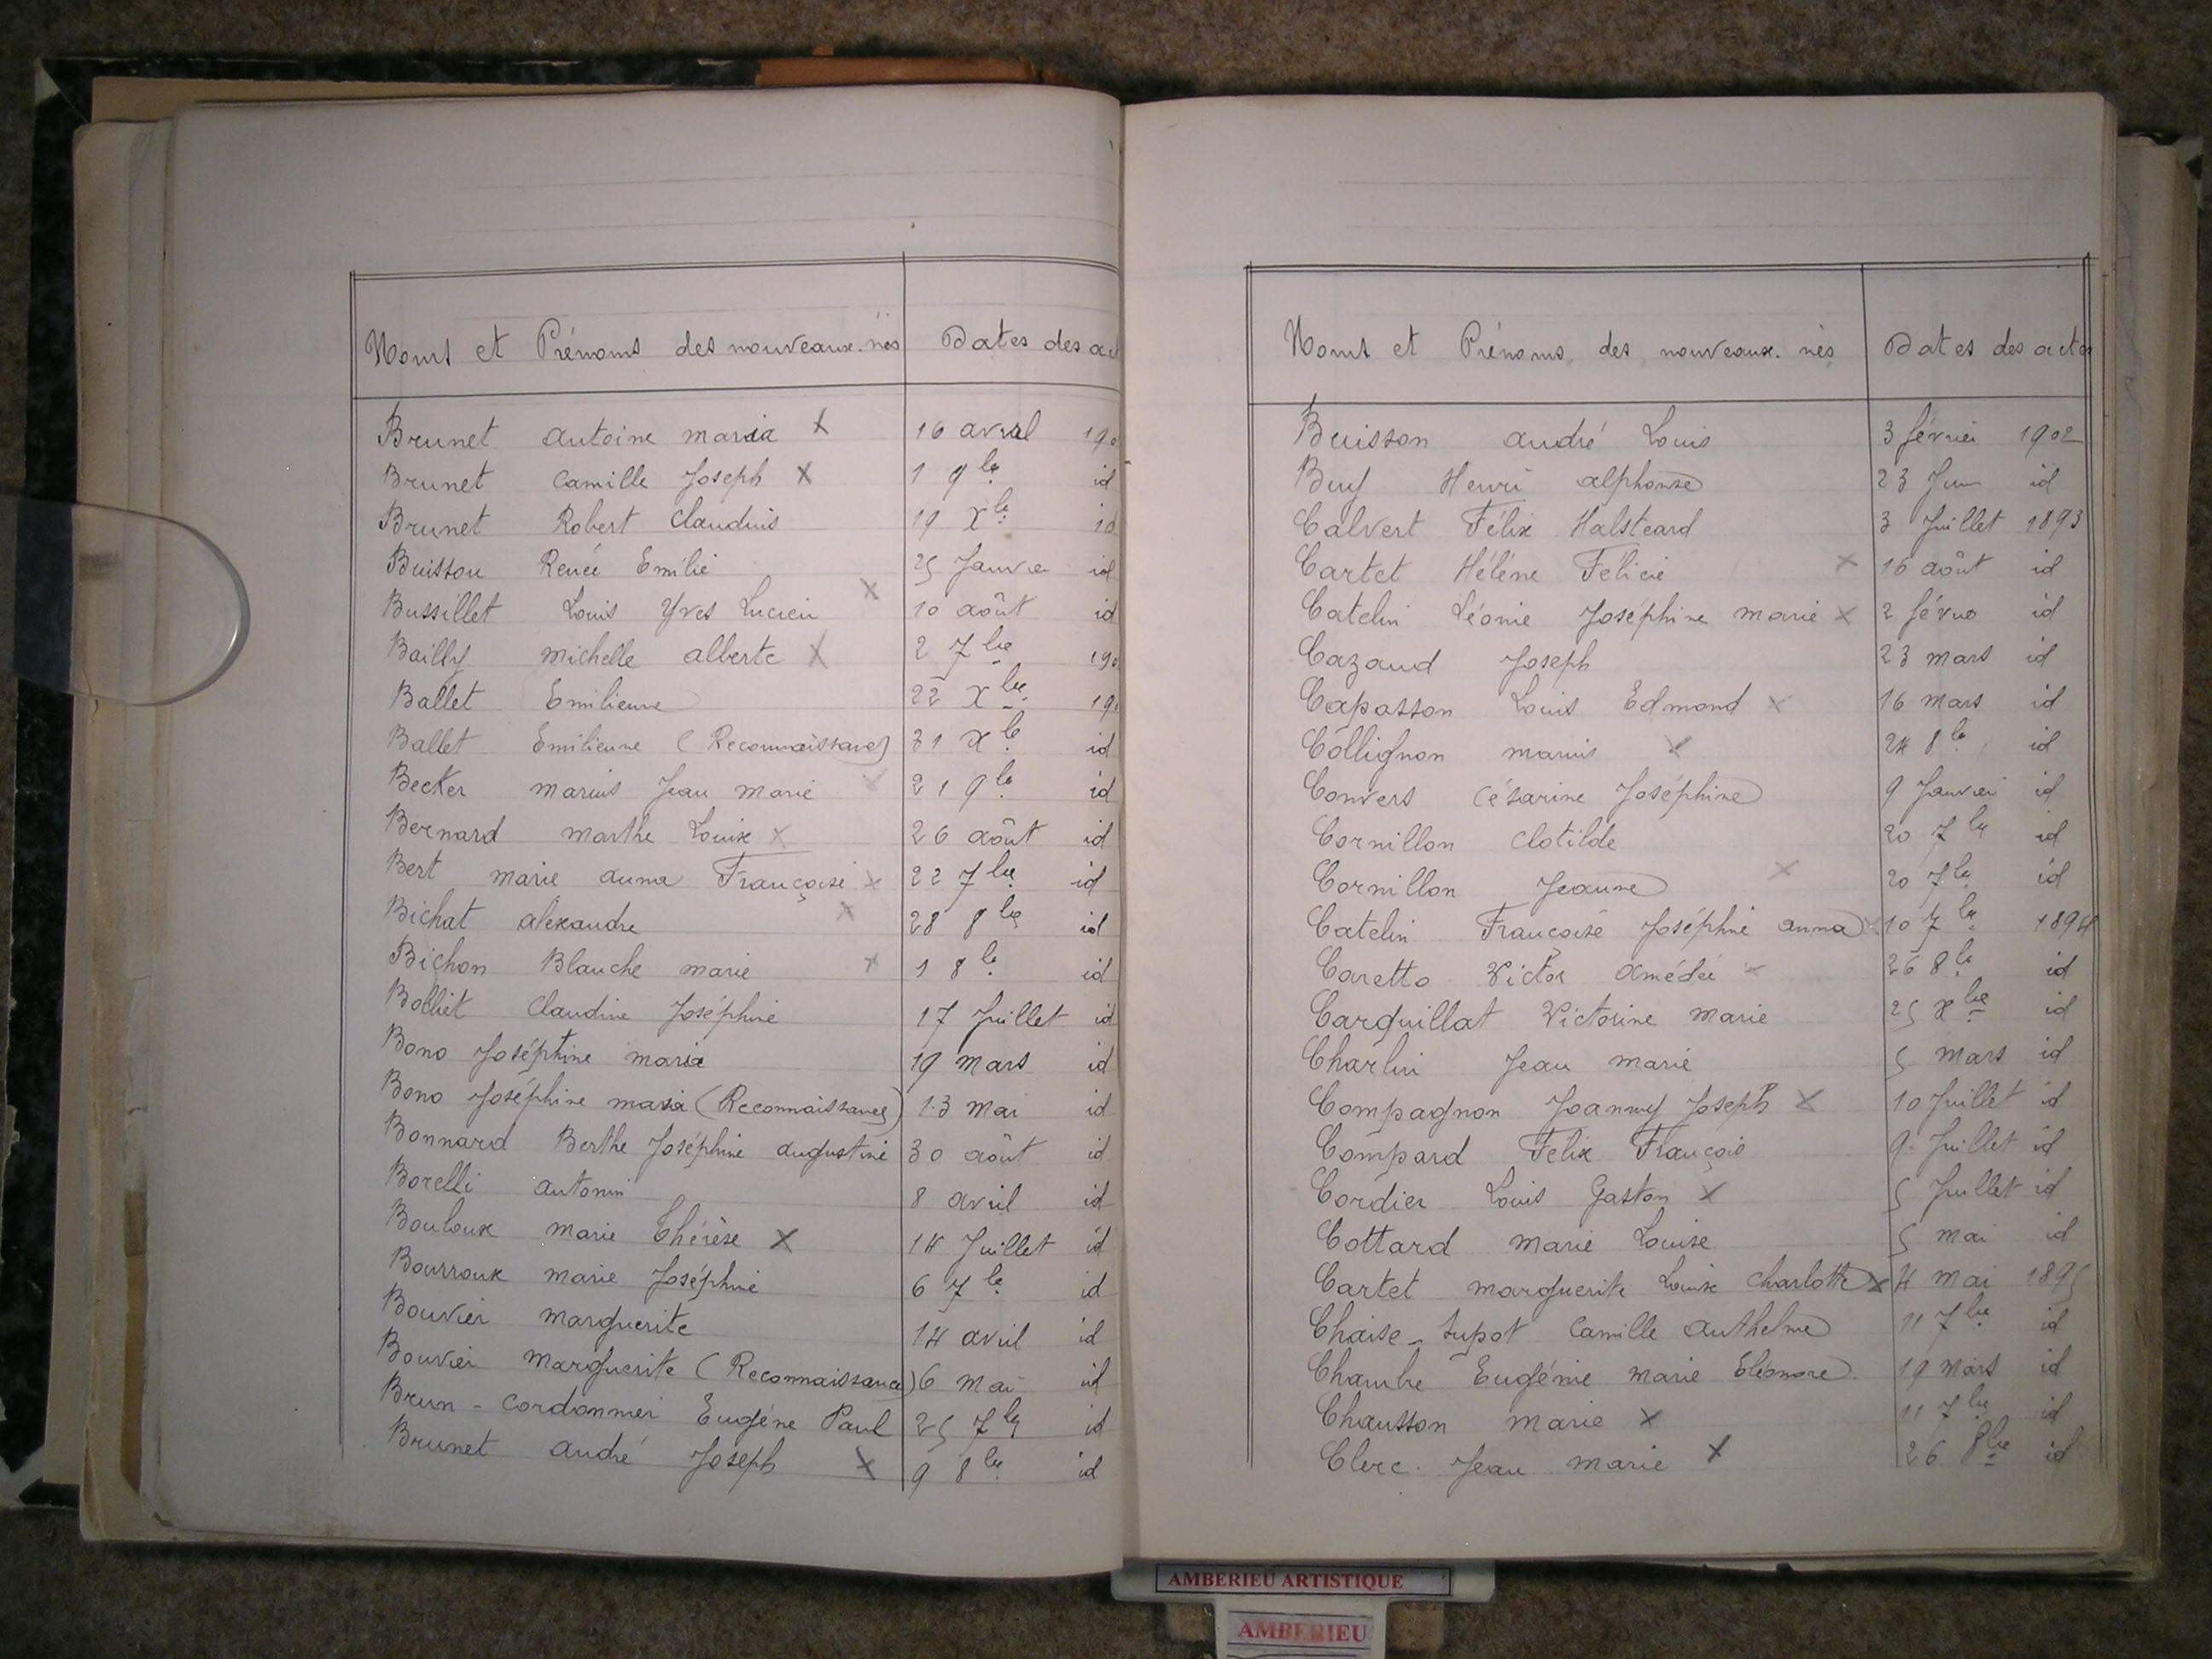 Noms et Prénoms des nouveaux-nés Dates des act
Brunet antoine maria x 16 avril 190
Brunet Camille Joseph x 1 9bre id
Brunet Robert Claudius 19 Xbre id
Buisson Renée Emilie 25 Janvier id
Bussillet Louis Yves Lucien x 10 août id
Bailly michelle alberte x 2 7bre 190
Ballet Emilienne 22 Xbre 190
Ballet Emilienne (Reconnaissance) 31 Xbre id
Becker marius Jean marie x 21 9bre id
Bernard marthe Louise x 26 août id
Bert marie anna Françoise x 22 7bre id
Bichat alexandre x 28 8bre id
Bichon Blanche marie x 1 8bre id
Bolliet Claudine Joséphine 17 Juillet id
Bono Joséphine maria 19 mars id
Bono Joséphine maria (Reconnaissance) 13 mai id
Bonnard Berthe Joséphine augustine 30 août id
Borelli antonin 8 avril id
Bouloux marie Thérèse x 14 Juillet id
Bourroux marie Joséphine 6 7bre id
Bouvier marguerite 14 avril id
Bouvier marguerite (Reconnaissance) 6 mai id
Brun-Cordonnier Eugène Paul 25 7bre id
Brunet andré Joseph x 9 8bre id
Noms et Prénoms des nouveaux-nés Dates des actes
Buisson andré Louis 3 février 1902
Buy Henri alphonse 23 Juin id
Calvert Félix Halsteard 3 Juillet 1893
Cartet Hélène Félicie x 16 août id
Catelin Léonie Joséphine marie x 2 février id
Cazaud Joseph 23 mars id
Capasson Louis Edmond x 16 mars id
Collignon marius x 24 8bre id
Convers Césarine Joséphine 9 Janvier id
Cornillon Clotilde 20 7bre id
Cornillon Jeanne x 20 7bre id
Catelin Françoise Joséphine anna x 10 7bre 1894
Caretto Victor amédée x 26 8bre id
Carquillat Victorine marie 25 Xbre id
Charlin Jean marie 5 mars id
Compagnon Joanny Joseph x 10 Juillet id
Compard Félix François 9 Juillet id
Cordier Louis Gaston x 5 Juillet id
Cottard marie Louise 5 mai id
Cartet marguerite Louise Charlotte x 4 mai 1895
Chaise-supot Camille anthelme 11 7bre id
Chambre Eugénie marie Eléonore 19 mars id
Chausson marie x 11 7bre id
Clerc Jean marie x 26 8bre id
AMBERIEU ARTISTIQUE
AMBERIEU